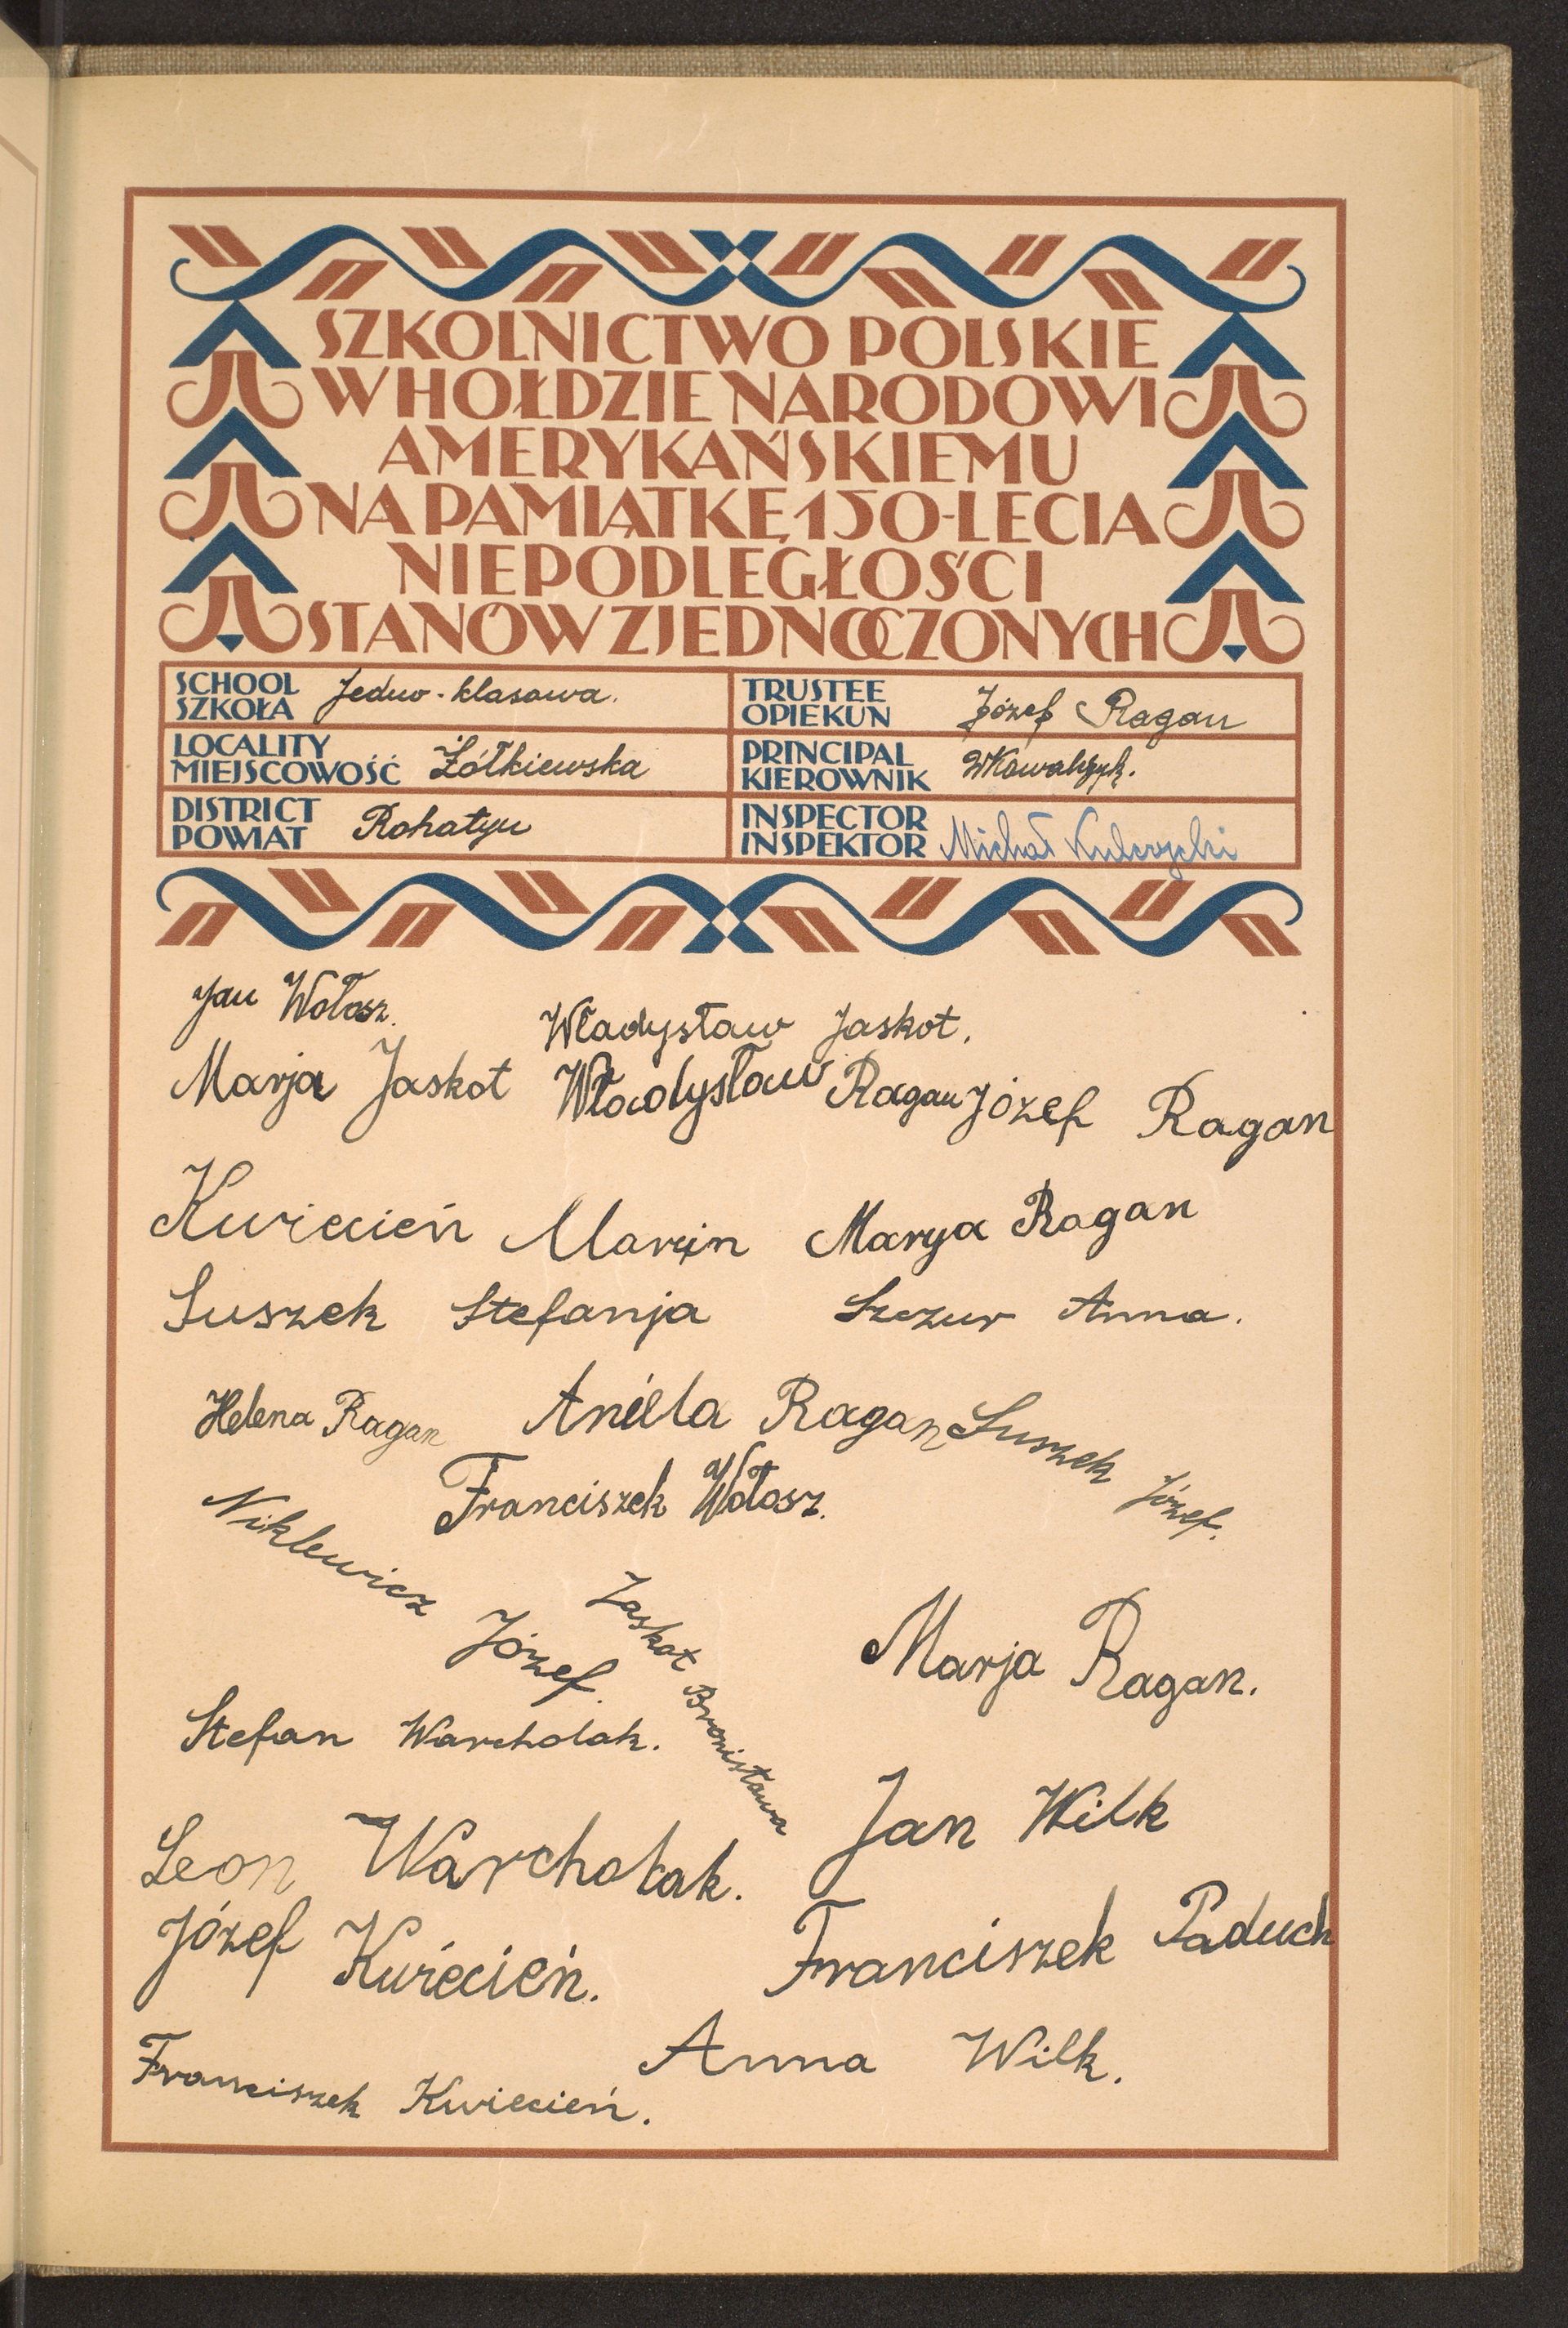 SZKOLNICTWO POLSKIE
W HOŁDZIE NARODOWI
AMERYKAŃSKIEMU
NA PAMIĄTKĘ 150-LECIA
NIEPODLEGŁOŚCI
STANÓW ZJEDNOCZONYCH
SCHOOL
SZKOŁA Jedno-klasowa.
TRUSTEE
OPIEKUN Józef Ragan
LOCALITY
MIEJSCOWOŚĆ Żółkiewska
PRINCIPAL
KIEROWNIK WKowalczyk.
DISTRICT
POWIAT Rohatyn
INSPECTOR
INSPEKTOR Michał Kulczycki
Jan Wołosz.
Władysław Jaskot.
Marja Jaskot Władysław Ragan Józef Ragan
Kwiecień Marcin Marya Ragan
Suszek Stefanja Szczur Anna.
Helena Ragan Aniela Ragan Suszek Józef.
Franciszek Wołosz.
Niklewicz Józef.
Jaskot Bronisława
Marja Ragan.
Stefan Warcholak.
Jan Wilk
Leon Warcholak.
Józef Kwiecień.
Franciszek Paduch
Anna Wilk.
Franciszek Kwiecień.